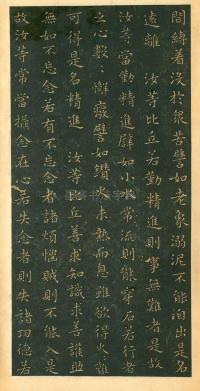 間縛著沒於眾苦譬如老象溺泥不能自出是名
遠離 汝等比丘若勤精進則事無難者是故
汝等當勤精進譬如小水常流則能穿石若行者
之心數數懈廢譬如鑽火未熱而息雖欲得火難
可得是名精進 汝等比丘善求知識求善護助
無如不忘念若有不忘念者諸煩惱賊則不能入是
故汝等常當攝念在心若失念者則失諸功德若